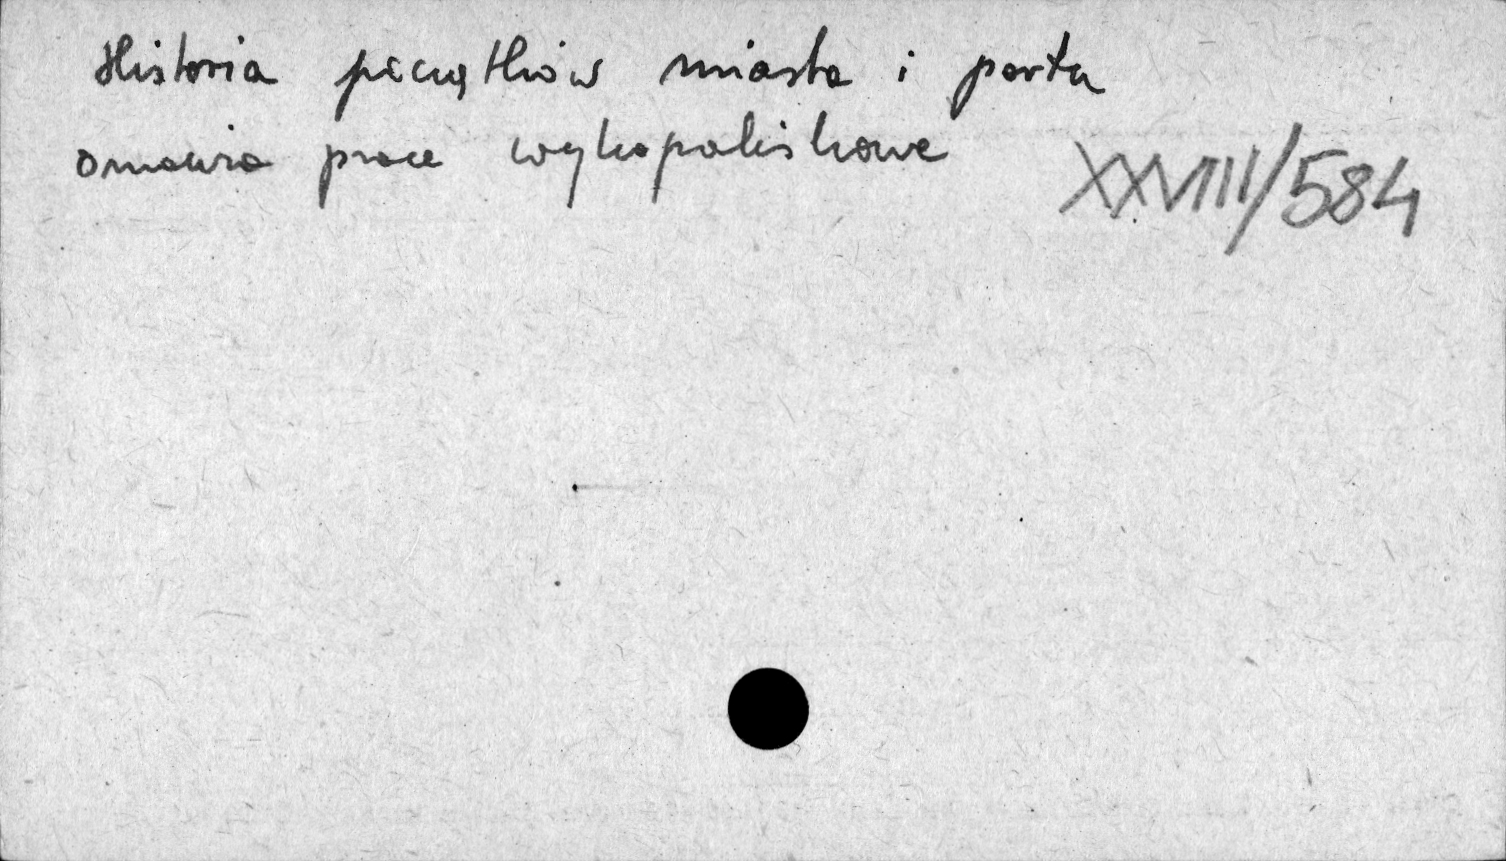 Historia początków miasta i portu
omawia prace wykopaliskowe
XXVIII/584